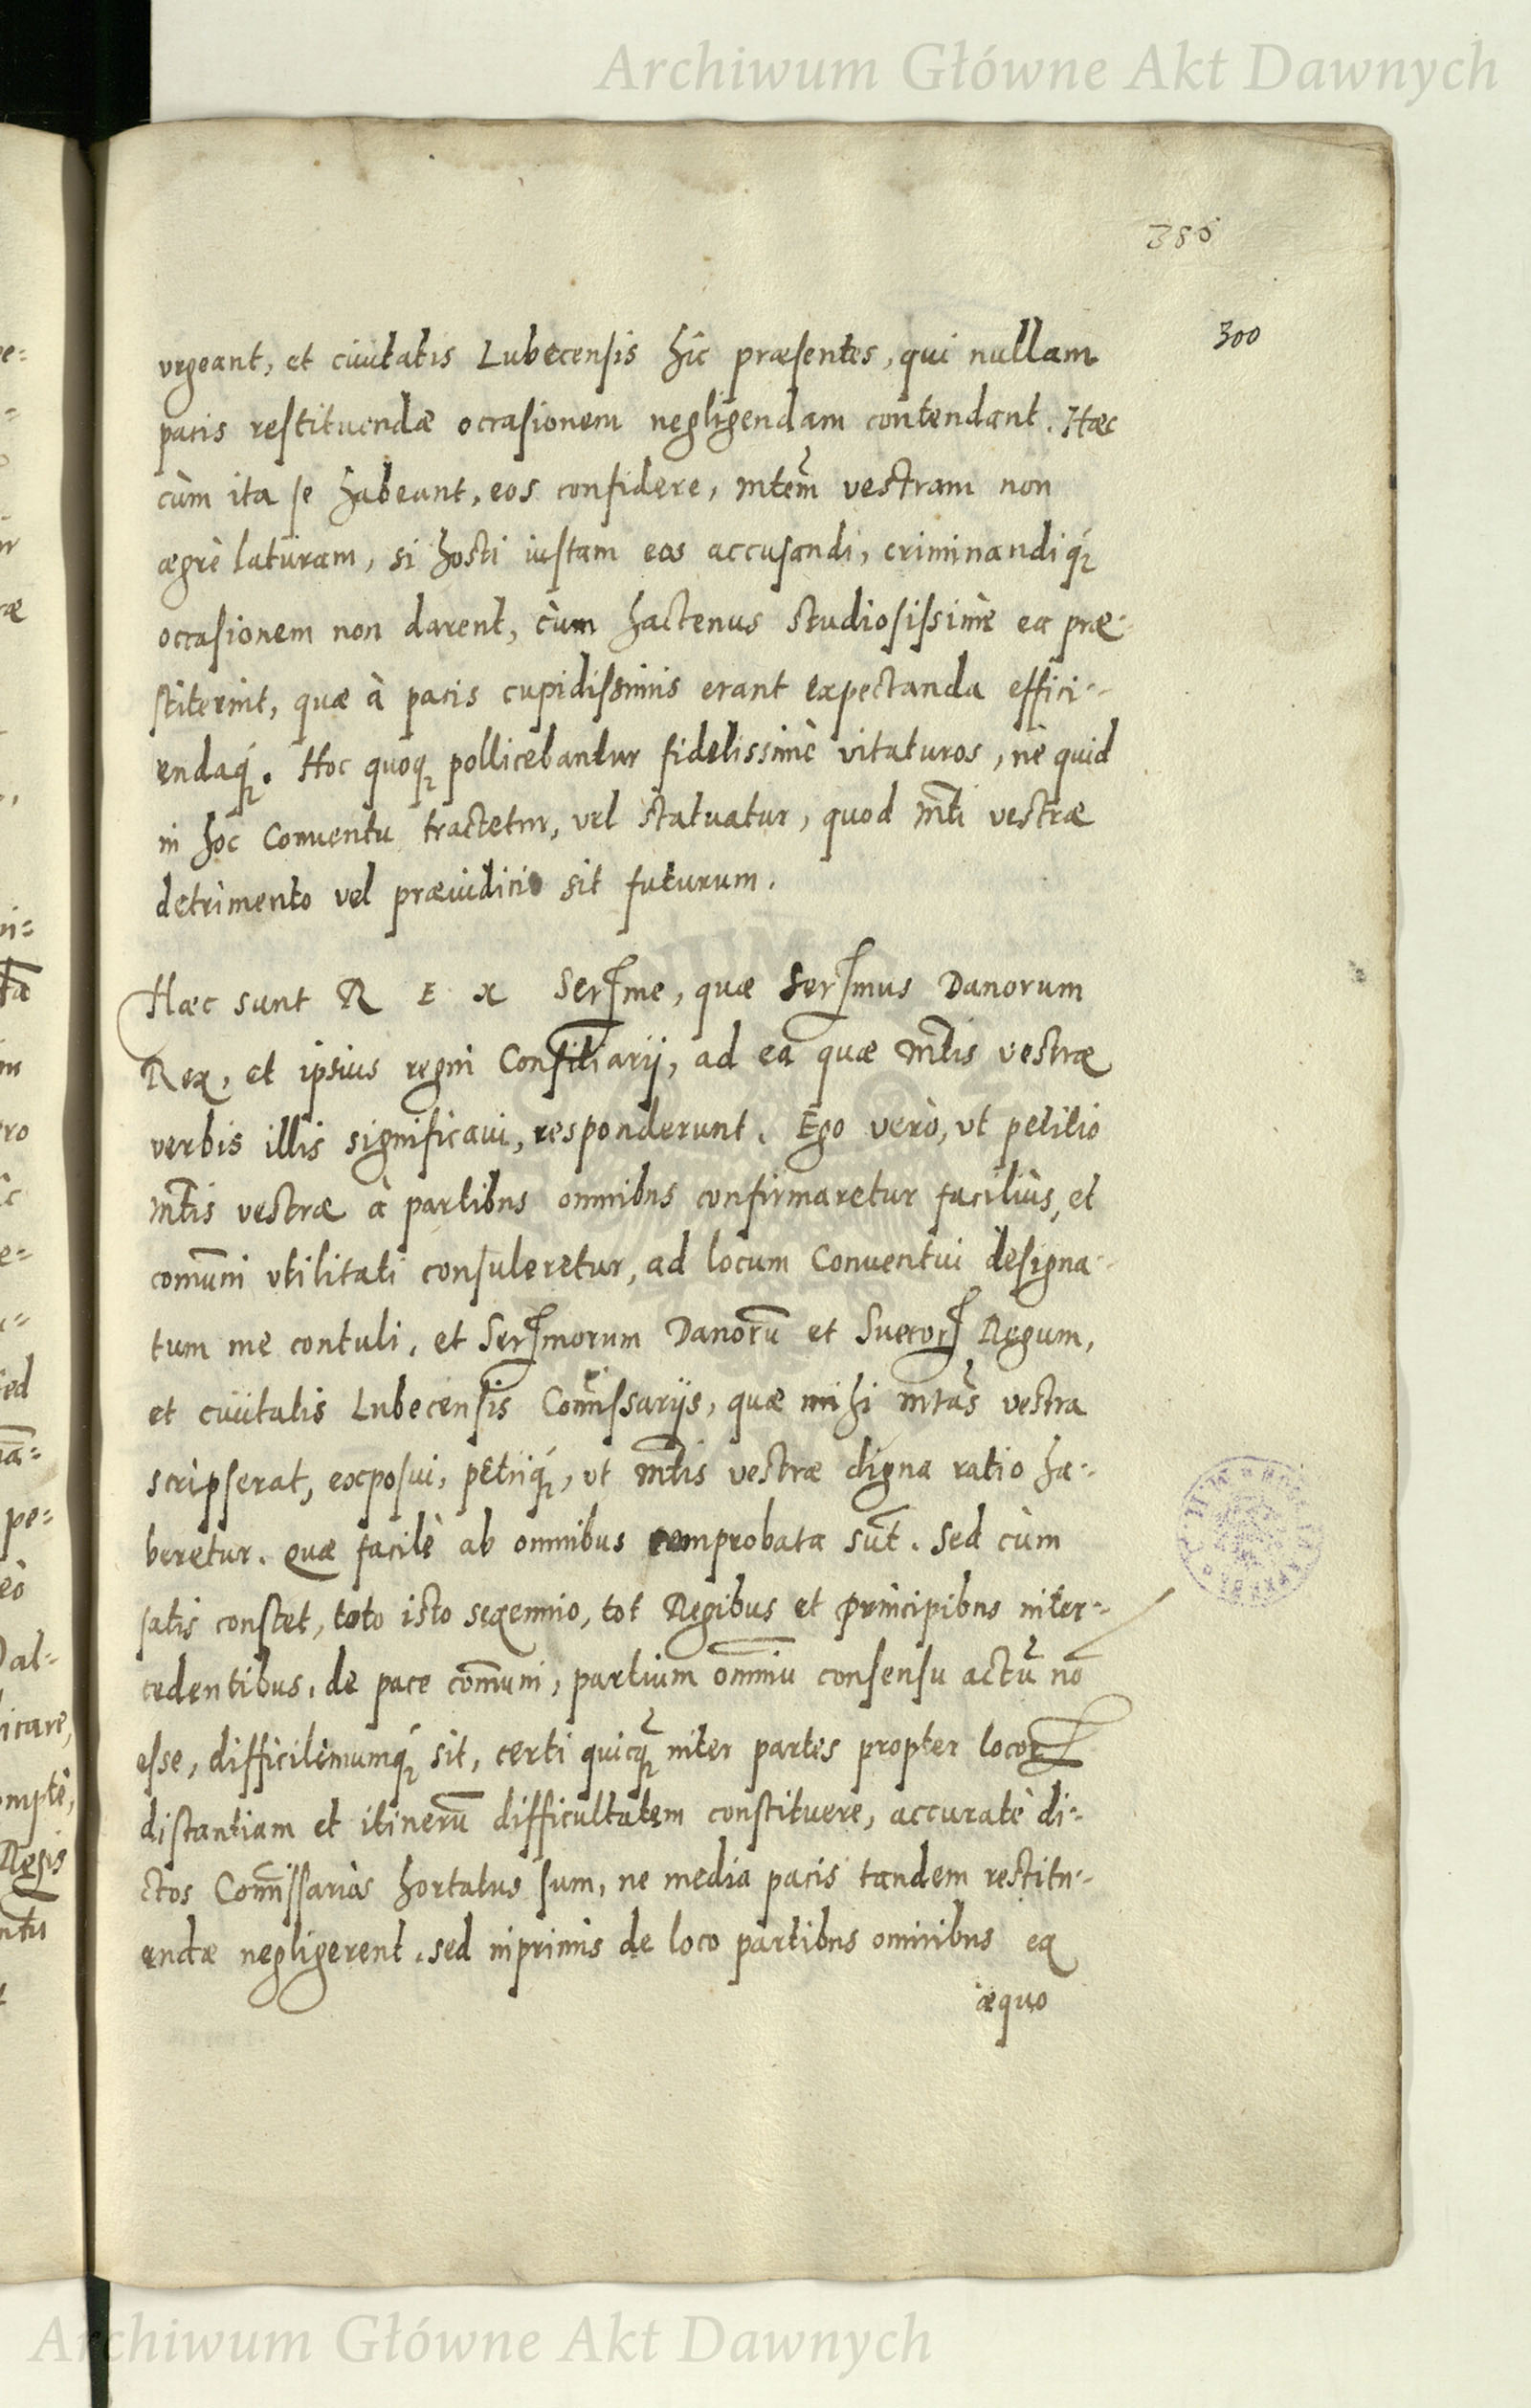 Archiwum Główne Akt Dawnych
386
300
vrgeant, et ciuitatis Lubecensis hîc præsentes, qui nullam
pacis restituendæ occasionem negligendam contendant. Hæc
cùm ita se habeant, eos confidere, Mtem̃ vestram non
ægrè laturam, si hosti iustam eos accusandi, criminandiq́;
occasionem non darent, cùm hactenus studiosissimè ea præ-
stiterint, quæ à pacis cupidissimis erant expectanda effici-
endaq́;. Hoc quoq; pollicebantur fidelissimè vitaturos, nè quid
in hoc Conuentu tractetur, vel statuatur, quod Mti vestræ
detrimento vel præiudicio sit futurum.
Hæc sunt R E X Serme, quæ Sermus Danorum
Rex, et ipsius regni Consiliarij, ad ea quæ Mtis vestræ
verbis illis significaui, responderunt. Ego verò, vt petitio
Mtis vestræ à partibus omnibus confirmaretur faciliùs, et
com̃uni vtilitati consuleretur, ad locum Conuentui designa-
tum me contuli, et Sermorum Danorũ et Sueror Regum,
et ciuitatis Lubecensis Com̃issarijs, quæ mihi Mtas vestra
scripserat, exposui, petiiq́;, vt Mtis vestræ digna ratio ha-
beretur. Quæ facilè ab omnibus comprobata sũt. Sed cùm
satis constet, toto isto sexennio, tot Regibus et Principibus inter-
cedentibus, de pace com̃uni, partium om̃niu consensu actũ nõ
esse, difficilimumq́; sit, certi quicq; inter partes propter locor
distantiam et itinerũ difficultatem constituere, accuratè di-
ctos Com̃issarios hortatus sum, ne media pacis tandem restitu-
endæ negligerent. sed inprimis de loco partibus omnibus ex
æquo
Archiwum Główne Akt Dawnych